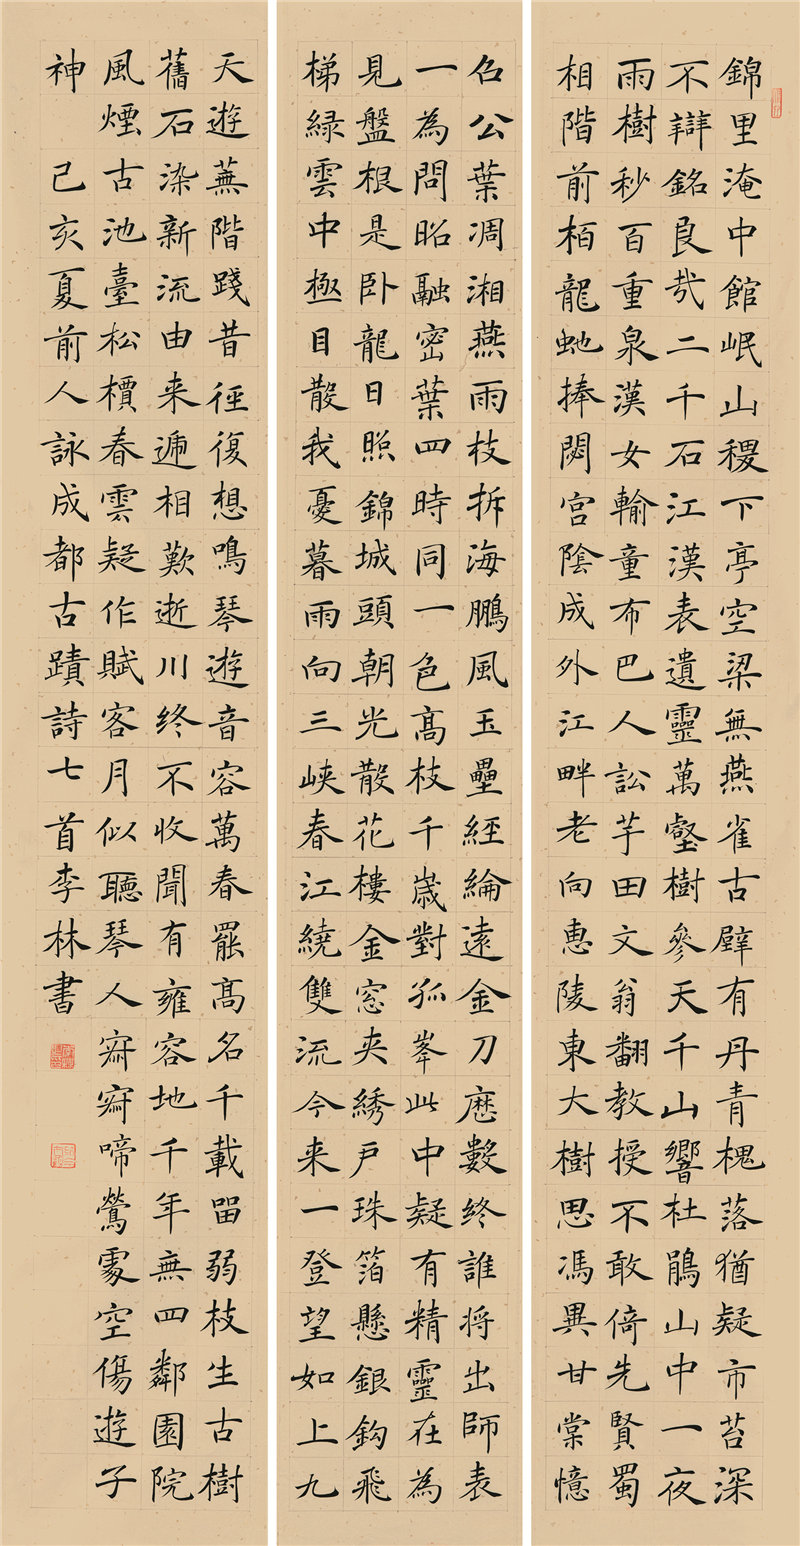 錦里淹中館岷山稷下亭空梁無燕雀古壁有丹青槐落猶疑市苔深
不辯銘良哉二千石江漢表遺靈萬壑樹參天千山響杜鵑山中一夜
雨樹秒百重泉漢女輸童布巴人訟芋田文翁翻教授不敢倚先賢蜀
相階前柏龍虵捧閟宮陰成外江畔老向惠陵東大樹思馮異甘棠憶
召公葉凋湘燕雨枝拆海鵬風玉壘經綸遠金刀歷數終誰將出師表
一為問昭融密葉四時同一色高枝千歲對孤峯此中疑有精靈在為
見盤根是卧龍日照錦城頭朝光散花樓金窓夾綉戶珠箔懸銀鈎飛
梯綠雲中極目散我憂暮雨向三峽春江繞雙流今来一登望如上九
天遊蕪階踐昔徑復想鳴琴遊音容萬春罷高名千載留弱枝生古樹
舊石染新流由来遞相歎逝川終不收聞有雍容地千年無四鄰園院
風煙古池臺松檟春雲疑作賦客月似聽琴人寂寂啼鶯處空傷遊子
神 己亥夏前人詠成都古蹟詩七首李林書